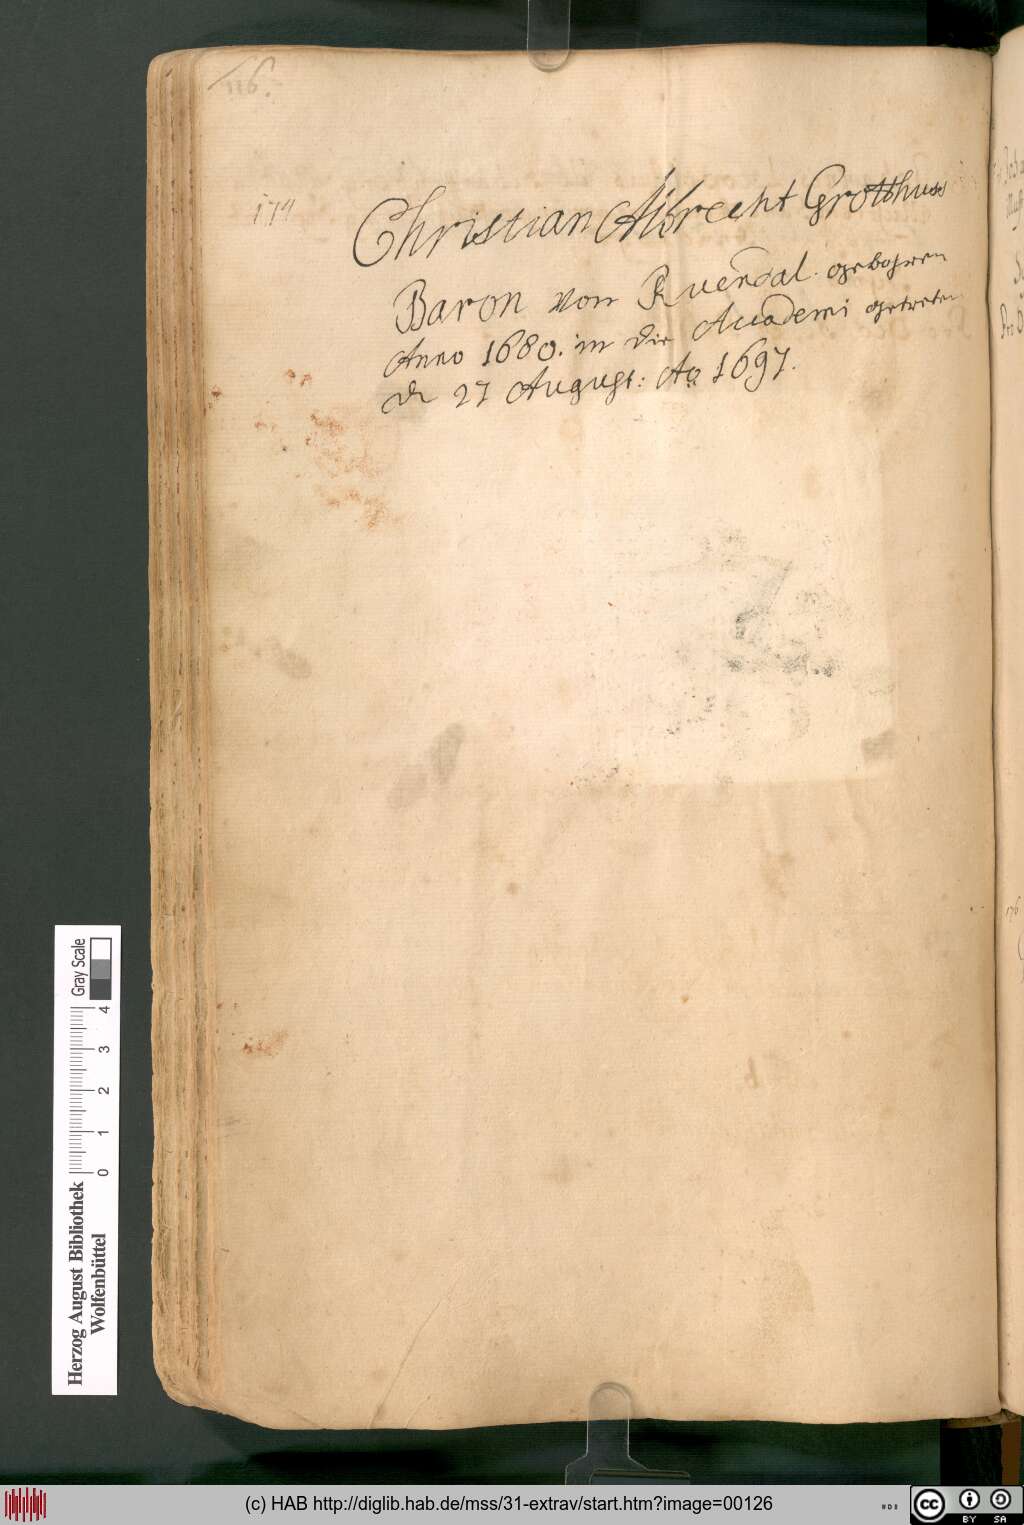 116.
174
Christian Albrecht Grotthuss
Baron von Ruendal. gebohren
Anno 1680. in die Accademi getreten
d 27 August: Ao 1697.
176
Gray Scale
0 1 2 3 4
Herzog August Bibliothek
Wolfenbüttel
(c) HAB http://diglib.hab.de/mss/31-extrav/start.htm?image=00126
cc BY SA